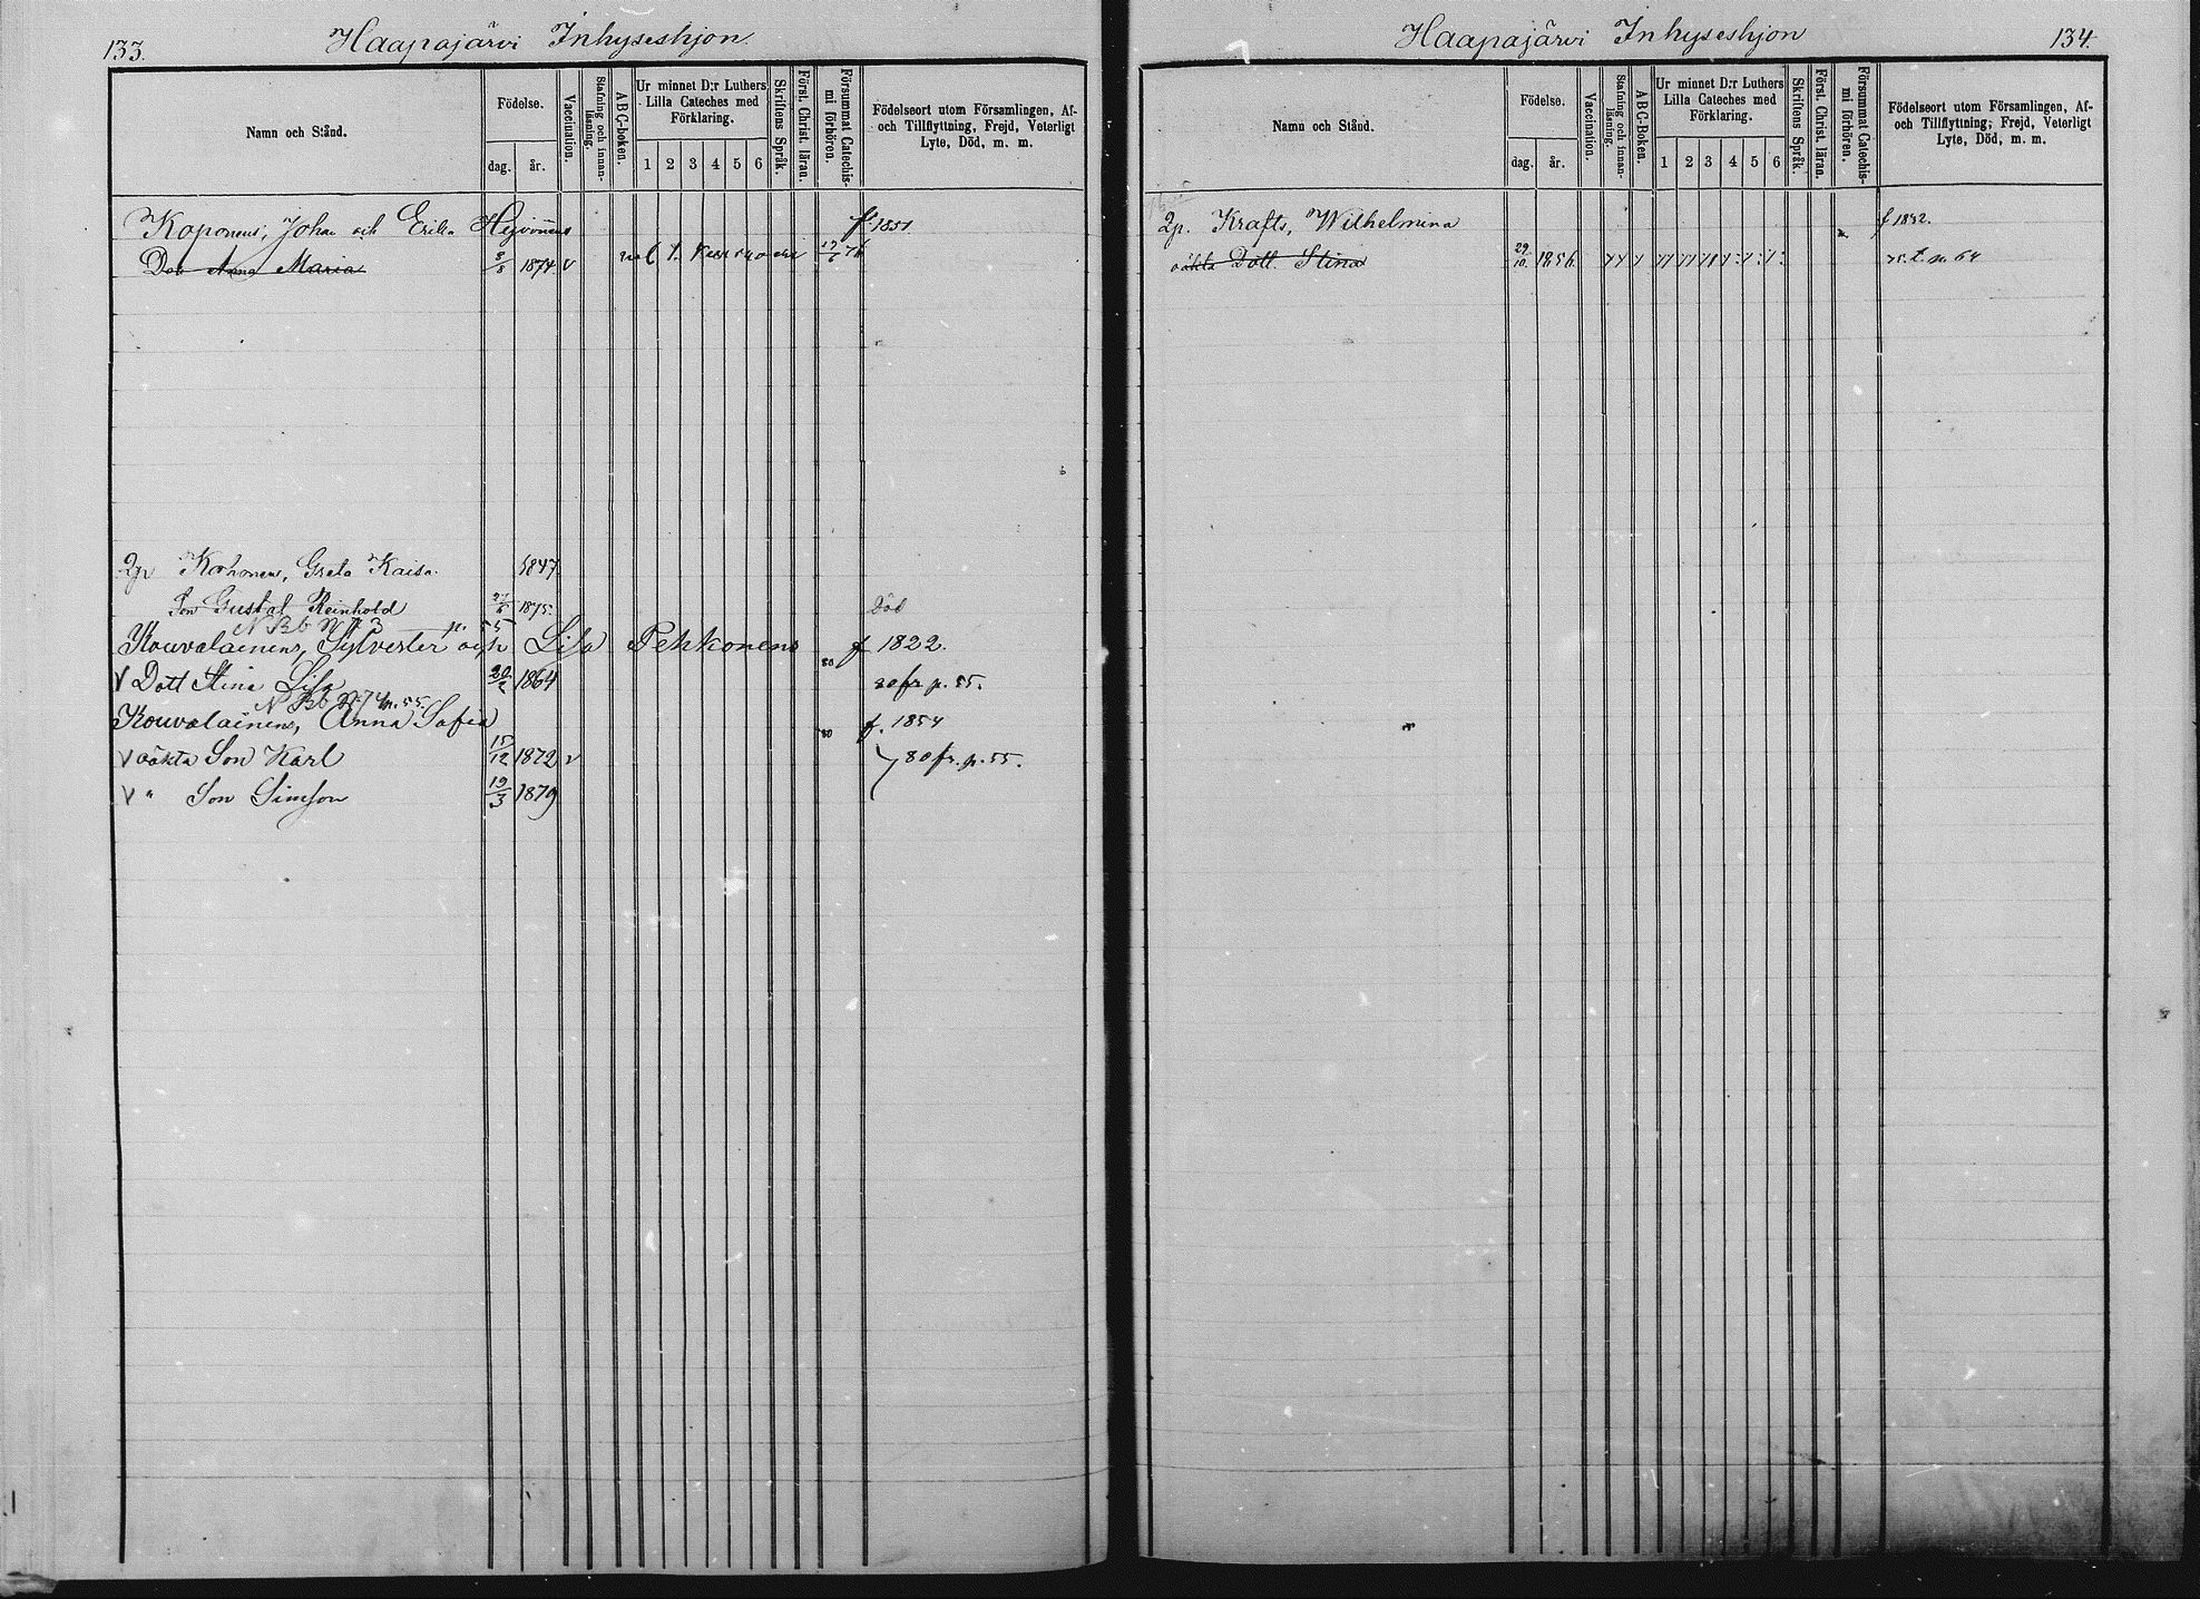 133.
Haapajärvi Inhyseshjon.
Namn och Stånd.
Födelse.
dag.
år.
Vaccination.
Stafning och innan-läsning.
ABC-boken.
Ur minnet D:r Luthers Lilla Cateches med Förklaring.
1 2 3 4 5 6
Skriftens Språk.
Först. Christ. läran.
Försummat Catechis-mi förhören.
Födelseort utom Församlingen, Af- och Tillflyttning, Frejd, Veterligt Lyte, Död, m. m.
Koponens, Johan och Erika Hyvönens f. 1851
Dot Anna Maria 8/8 1874 v 76
Qp Korhonen, Greta Kaisa. 1847
Son Gustaf Reinhold 27/6 1875. Död
p. 55
Kouvalainens, Sylvester och Lisa Pekkonens 80 f 1822.
V Dott Stina Lisa 20/2 1864 80 fr p. 55.
N Bb N:74 p. 55.
Kouvalainens, Anna Sofia 80 f. 1854
V oäkta Son Karl 15/12 1872 v 80 fr. p. 55.
V " Son Simson 19/3 1879
Haapajärvi Inhyseshjon
134.
Namn och Stånd.
Födelse.
dag.
år.
Vaccination.
Stafning och innan-läsning.
ABC-Boken.
Ur minnet D:r Luthers Lilla Cateches med Förklaring.
1 2 3 4 5 6
Skriftens Språk.
Först. Christ. läran.
Försummat Catechis-mi förhören.
Födelseort utom Församlingen, Af- och Tillflyttning; Frejd, Veterligt Lyte, Död, m. m.
Qp. Krafts, Wilhelmina f 1832.
oäkta Dott. Stina 29/10 1856. 75. t. p. 64